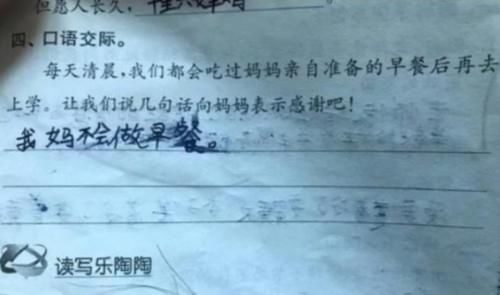 但愿人长久，
四、口语交际。
每天清晨，我们都会吃过妈妈亲自准备的早餐后再去
上学。让我们说几句话向妈妈表示感谢吧！
我妈不会做早餐。
读写乐陶陶